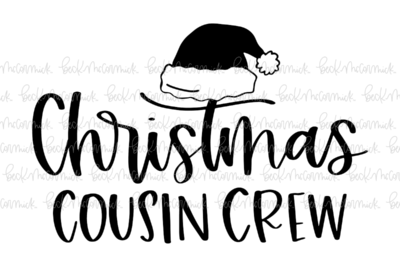 Christmas
COUSIN CREW